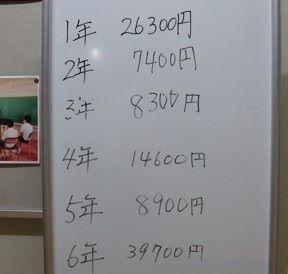 1年 26300円
2年 7400円
3年 8300円
4年 14600円
5年 8900円
6年 39700円